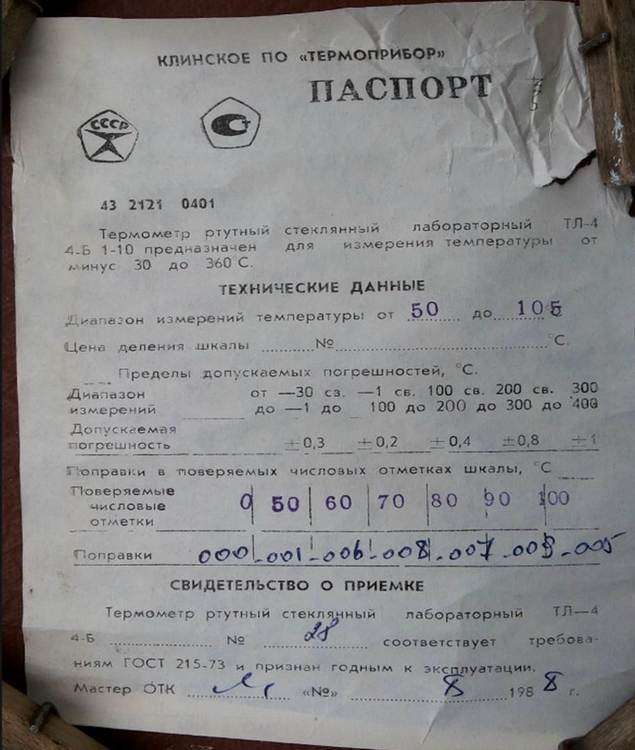 КЛИНСКОЕ ПО «ТЕРМОПРИБОР»
ПАСПОРТ
СССР
43 2121 0401
Термометр ртутный стеклянный лабораторный ТЛ-4
4-Б 1-10 предназначен для измерения температуры от
минус 30 до 360°С.
ТЕХНИЧЕСКИЕ ДАННЫЕ
Диапазон измерений температуры от 50 до 105
Цена деления шкалы № °С.
Пределы допускаемых погрешностей, °С.
Диапазон от —30 сз. —1 св. 100 св. 200 св. 300
измерений до —1 до 100 до 200 до 300 до 400
Допускаемая
погрешность ±0,3 ±0,2 ±0,4 ±0,8 ±1
Поправки в поверяемых числовых отметках шкалы, °С
Поверяемые
числовые 0 50 60 70 80 90 100
отметки
Поправки 000 -001 -006 -008 -007 -005
СВИДЕТЕЛЬСТВО О ПРИЕМКЕ
Термометр ртутный стеклянный лабораторный ТЛ—4
4-Б № 28 соответствует требова-
ниям ГОСТ 215-73 и признан годным к эксплуатации.
Мастер ОТК «№» 8 1988 г.